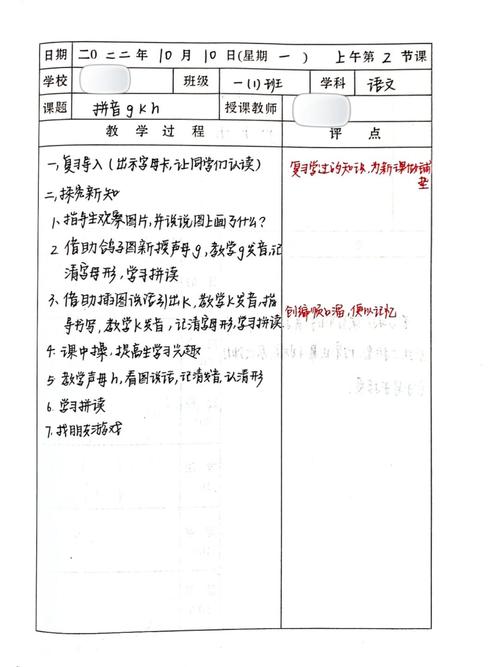 日期 二0二二年 10 月 10 日(星期 一 ) 上午第 2 节课
学校 班级 一(1)班 学科 语文
课题 拼音gkh 授课教师
教学过程 评点
一、复习导入(出示字母卡,让同学们认读)
复习学过的知识,为新课做铺垫
二、探究新知
1、指导生观察图片,并说说图上画了什么?
2、借助鸽子图新授声母g,教学g发音,记
清字母形,学习拼读
3、借助插图说话引出k,教学k发音,指
导书写,教学k发音,记清字母形,学习拼读
创编顺口溜,便以记忆
4.课中操,提高生学习兴趣
5 教学声母h,看图说话,记清发音,认清形
6. 学习拼读
7.找朋友游戏